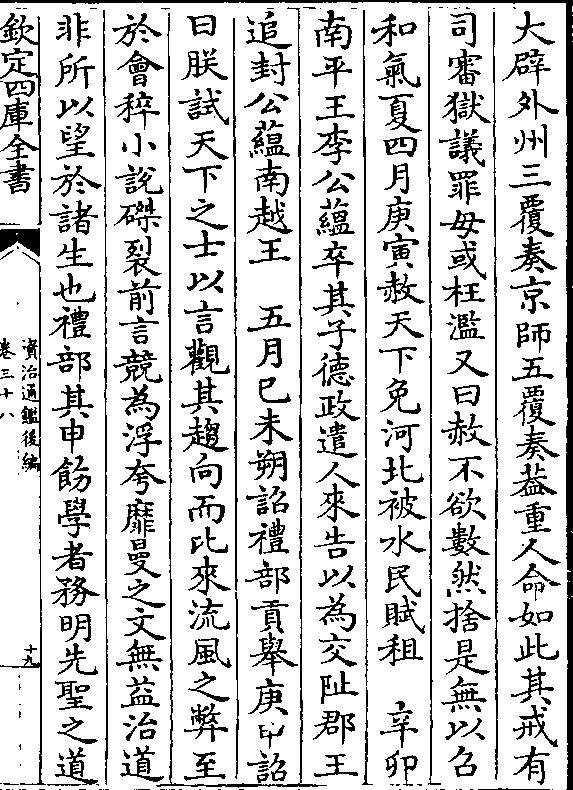 大辟外州三覆奏京師五覆奏葢重人命如此其戒有
司審獄議罪毋或枉濫又曰赦不欲數然捨是無以召
和氣夏四月庚寅赦天下免河北被水民賦租　辛卯
南平王李公蘊卒其子德政遣人來告以為交阯郡王
追封公蘊南越王　五月巳未朔詔禮部貢舉庚申詔
曰朕試天下之士以言觀其趨向而比來流風之弊至
於會稡小說磔裂前言競為浮夸靡曼之文無益治道
非所以望於諸生也禮部其申飭學者務明先聖之道
欽定四庫全書
資治通鑑後編
卷三十八
十九